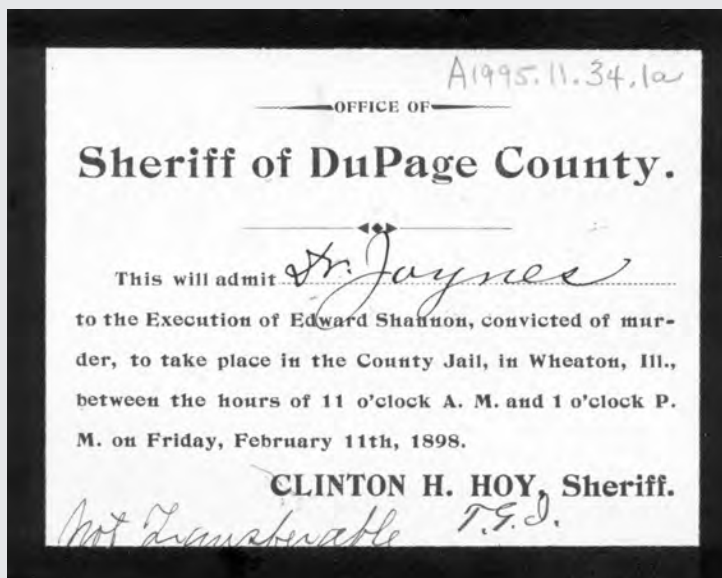 A1995.11.34.1a
OFFICE OF
Sheriff of DuPage County.
This will admit Dr. Joynes
to the Execution of Edward Shannon, convicted of mur-
der, to take place in the County Jail, in Wheaton, Ill.,
between the hours of 11 o'clock A. M. and 1 o'clock P.
M. on Friday, February 11th, 1898.
CLINTON H. HOY, Sheriff.
Not Transferable T.G.J.